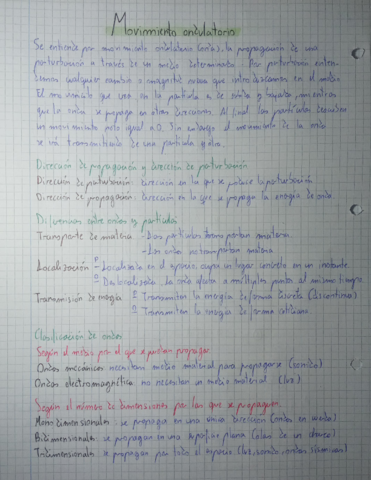 Movimiento ondulatorio
Se entiende por movimiento ondulatorio (onda), la propagación de una
perturbación a través de un medio determinado. Por perturbación enten-
demos cualquier cambio o magnitud nueva que introduzcamos en el medio
El movimiento que ven en la partícula es de subida y bajada, mientras
que la onda se propaga en otras direcciones. Al final las partículas describen
un movimiento neto igual a 0. Sin embargo el movimiento de la onda
se irá transmitiendo de una partícula a otra.
Dirección de propagación y dirección de perturbación
Dirección de perturbación: dirección en la que se produce la perturbación
Dirección de propagación: dirección en la que se propaga la energía de onda
Diferencias entre ondas y partículas
Transporte de materia - Las partículas transportan materia.
- Las ondas no transportan materia
Localización P Localizada en el espacio, ocupa un lugar concreto en un instante
O Deslocalizada. La onda afecta a múltiples puntos al mismo tiempo
Transmisión de energía P Transmiten la energía de forma discreta (discontinua)
O Transmiten la energía de forma continua.
Clasificación de ondas
Según el medio por el que se puedan propagar
Ondas mecánicas: necesitan medio material para propagarse (sonido)
Ondas electromagnética: no necesitan un medio material (luz)
Según el número de dimensiones por las que se propaguen
Monodimensionales: se propaga en una única dirección (ondas en muelle)
Bidimensionales: se propagan en una superficie plana (olas de un charco)
Tridimensionales: se propaga por todo el espacio (luz, sonido, ondas sísmicas)